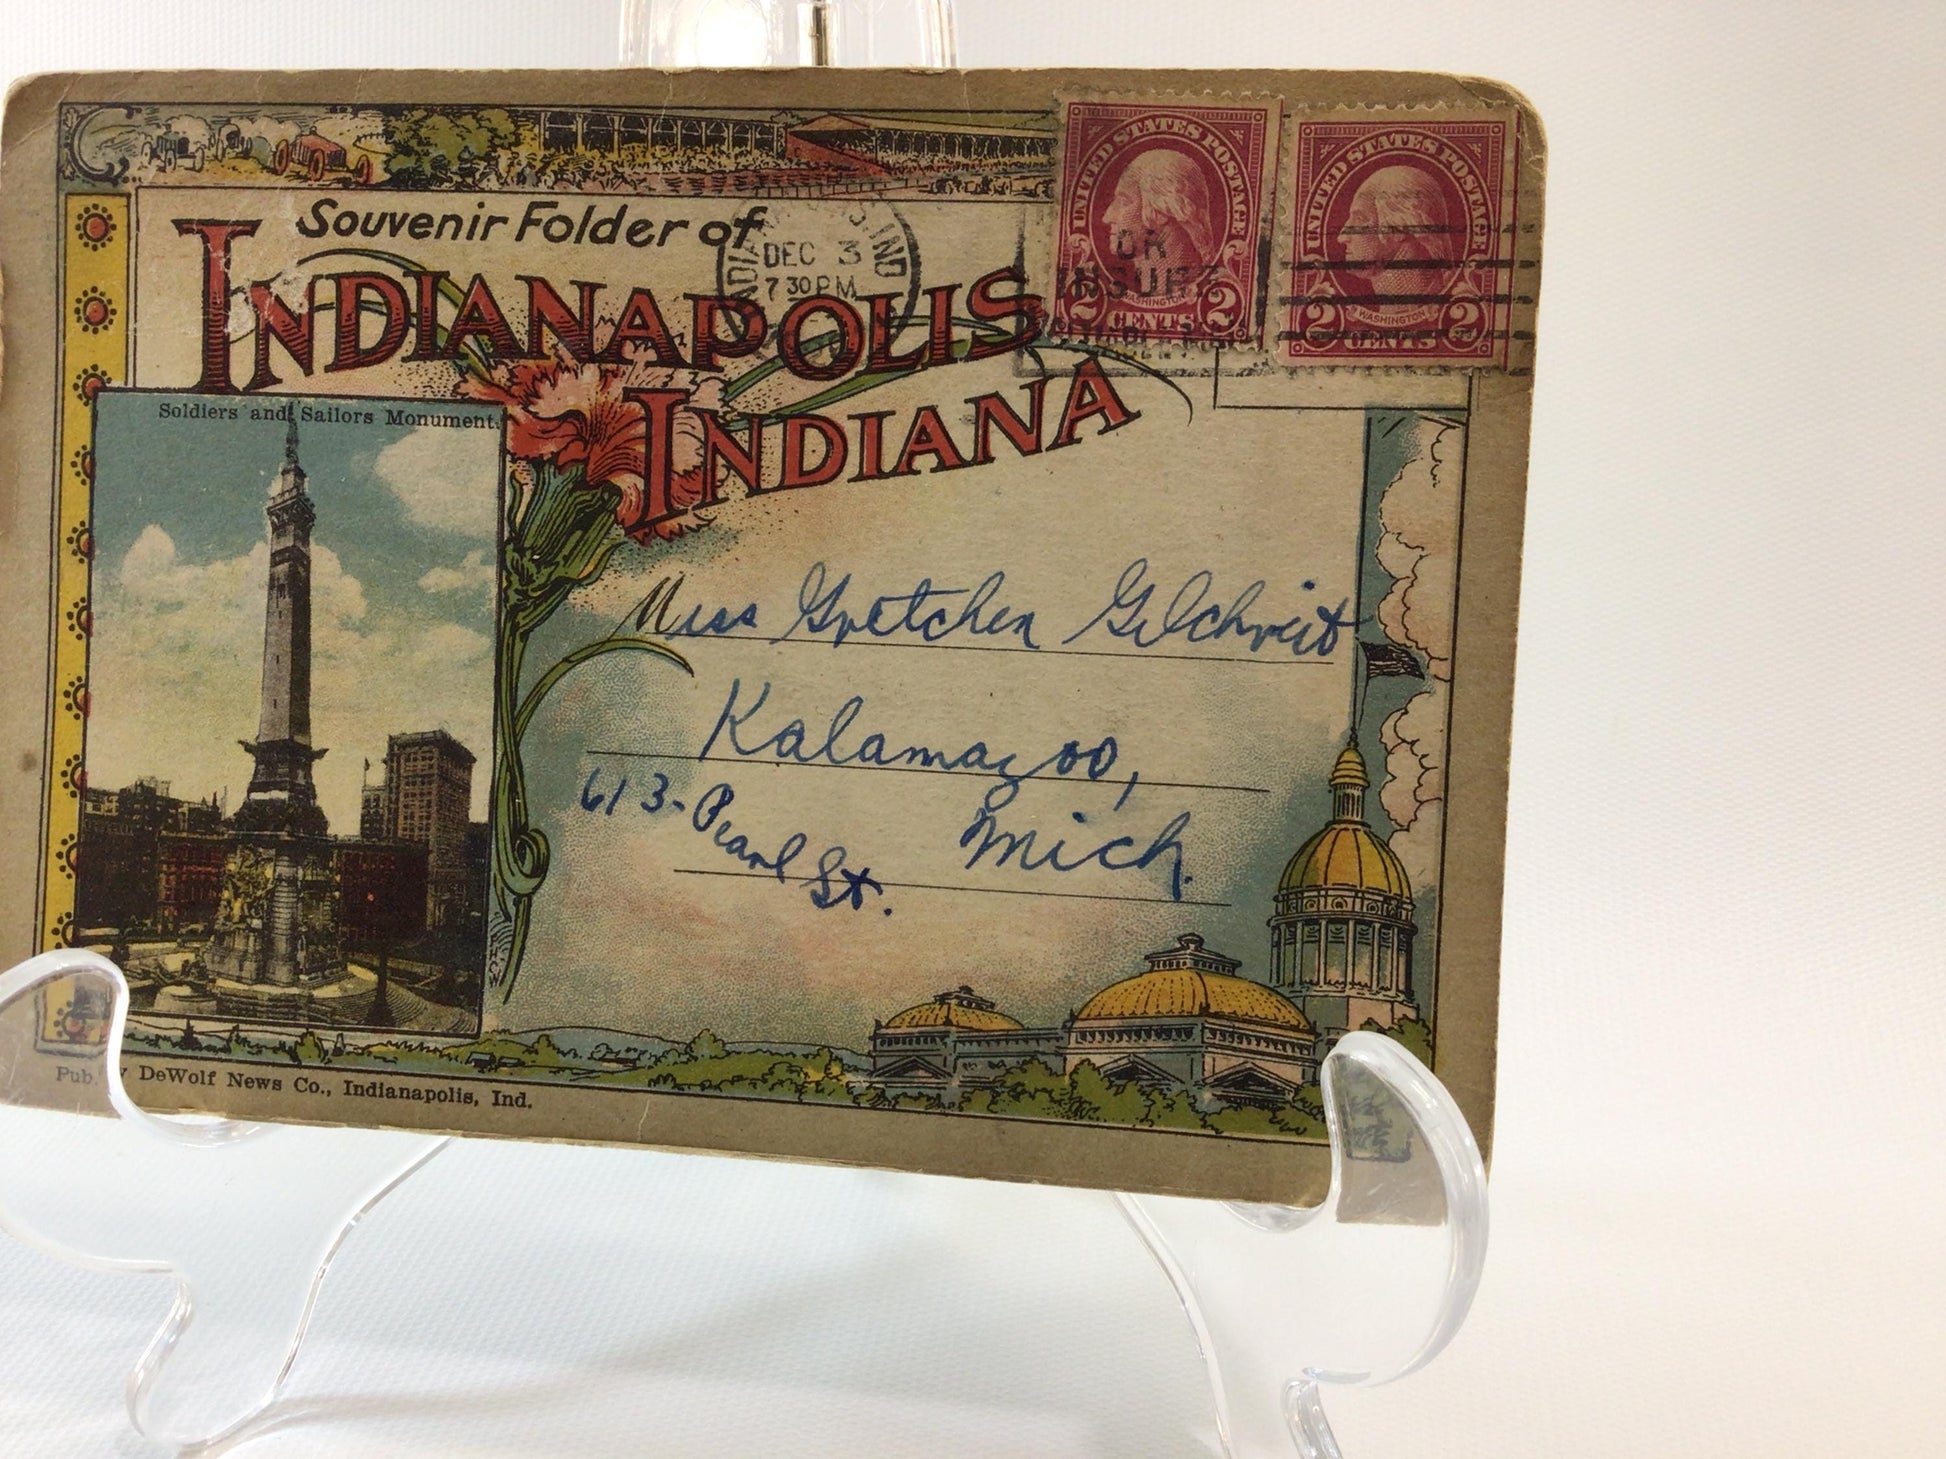 Souvenir Folder of
INDIANAPOLIS
INDIANA
DEC 3
7 30 PM
IND
UNITED STATES POSTAGE
WASHINGTON
2 CENTS 2
OR
INSURE
UNITED STATES POSTAGE
WASHINGTON
2 CENTS 2
Soldiers and Sailors Monument.
Miss Gretchen Gilchrist
Kalamazoo,
613-Pearl St.
Mich.
Pub. DeWolf News Co., Indianapolis, Ind.